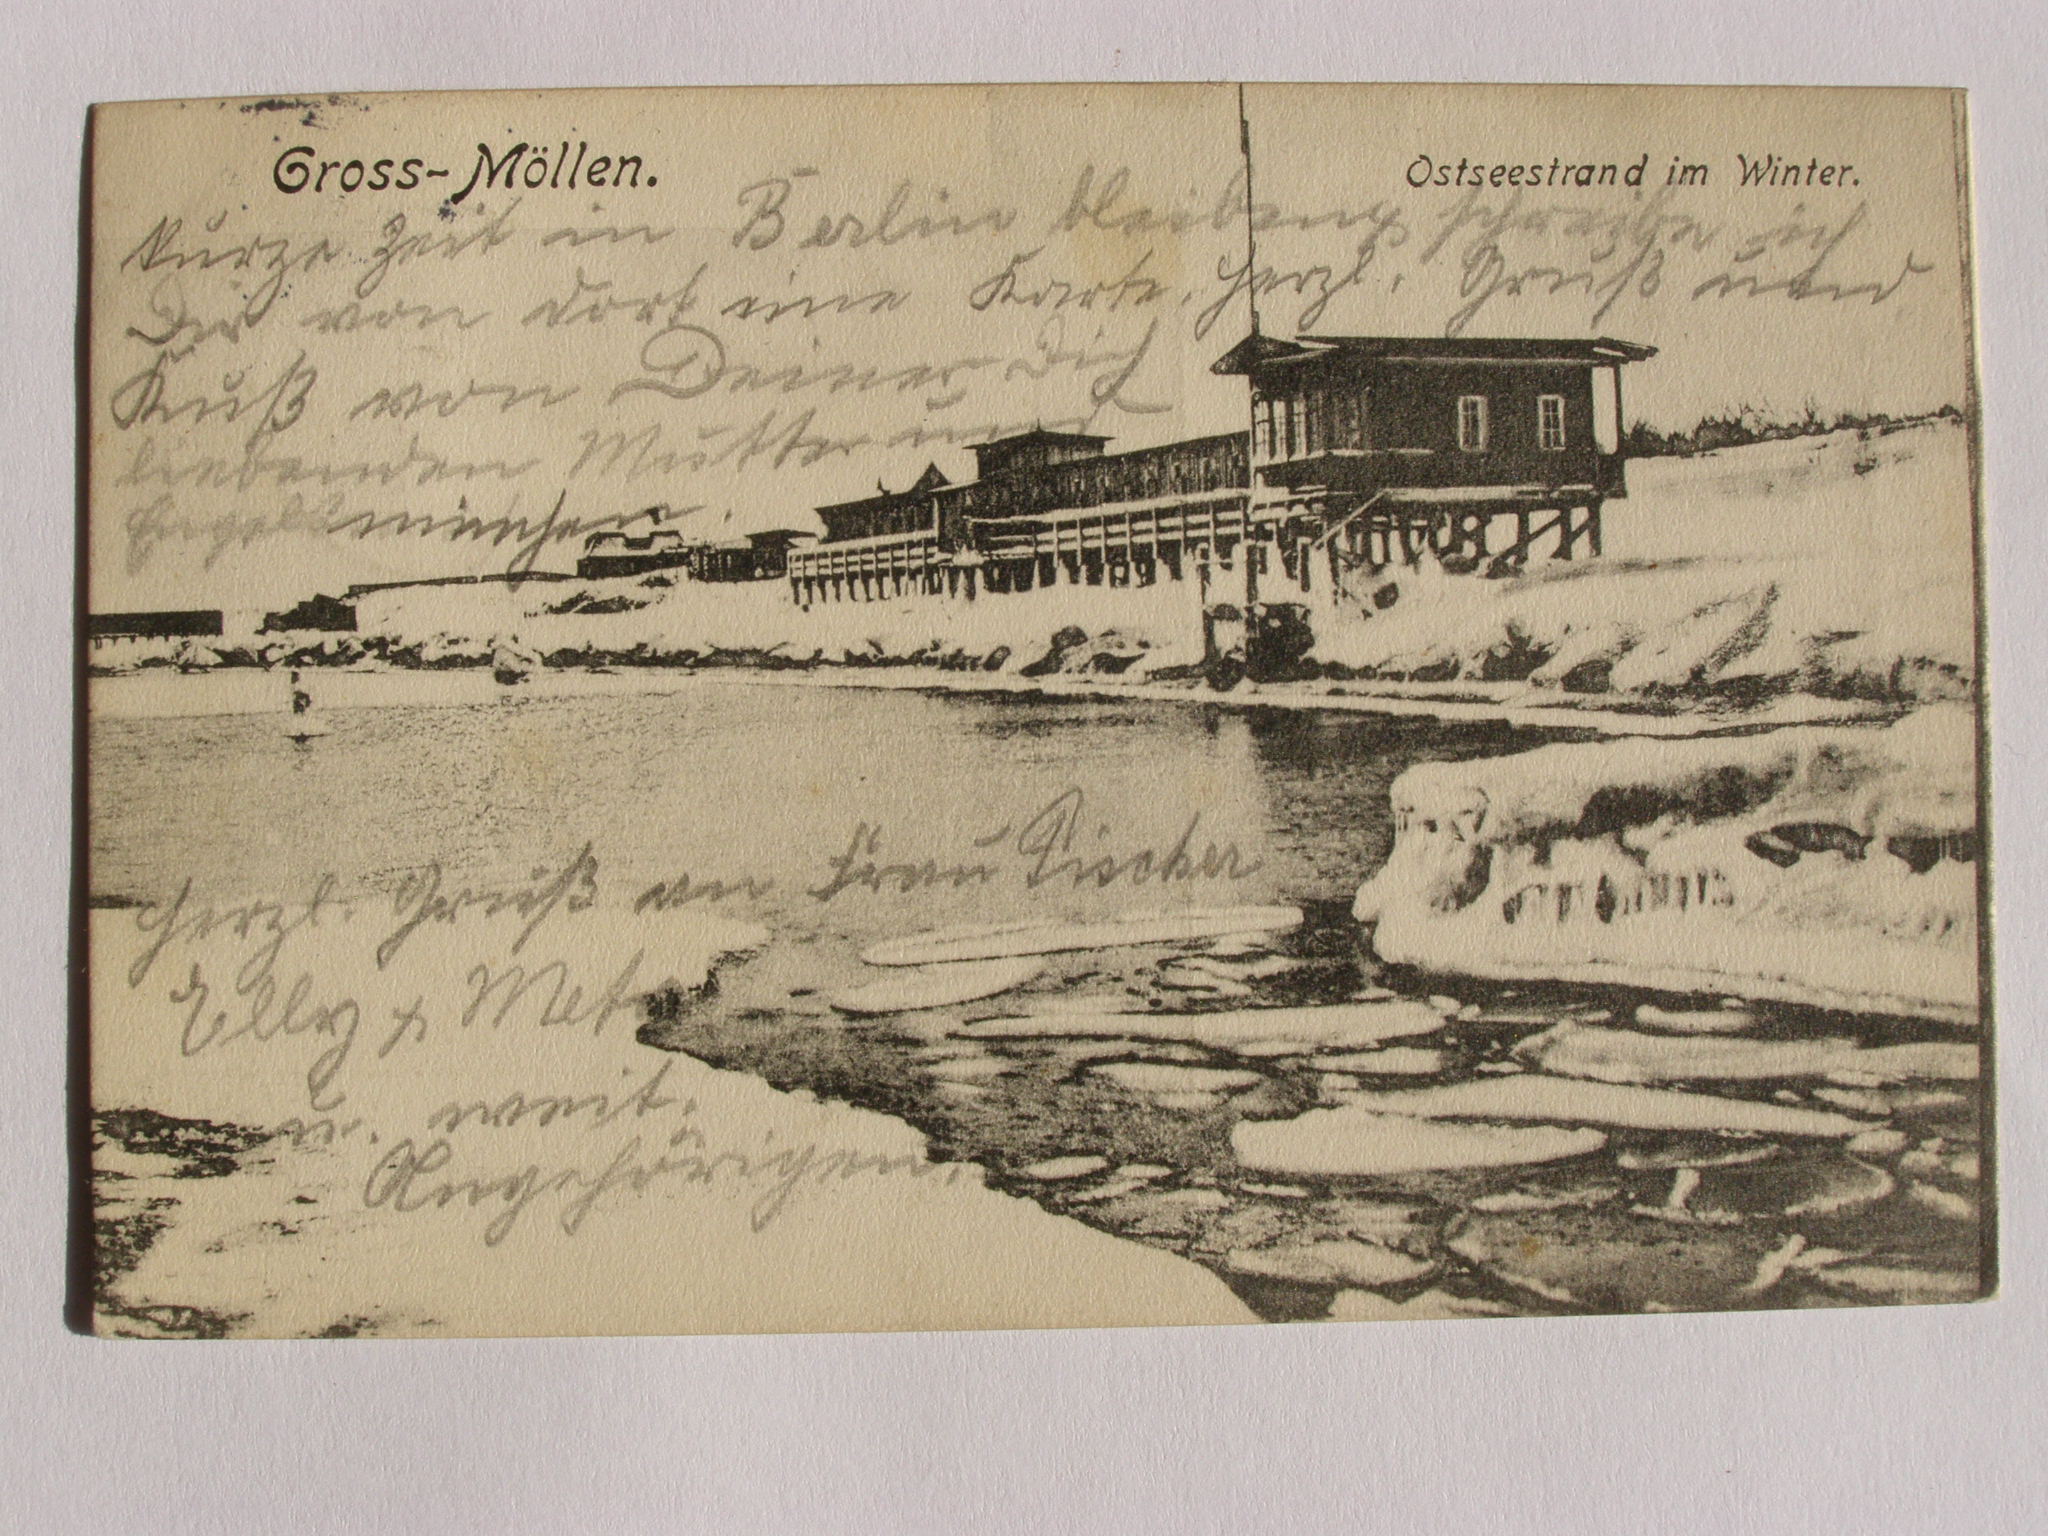 Gross-Möllen.
Ostseestrand im Winter.
kurze Zeit in Berlin bleiben, schreibe ich
Dir von dort eine Karte. Herzl. Gruß und
Kuß von Deiner Dich
liebenden Mutter und
Herzl. Gruß an Frau
Elly + Meta
u. weit.
Angehörigen.